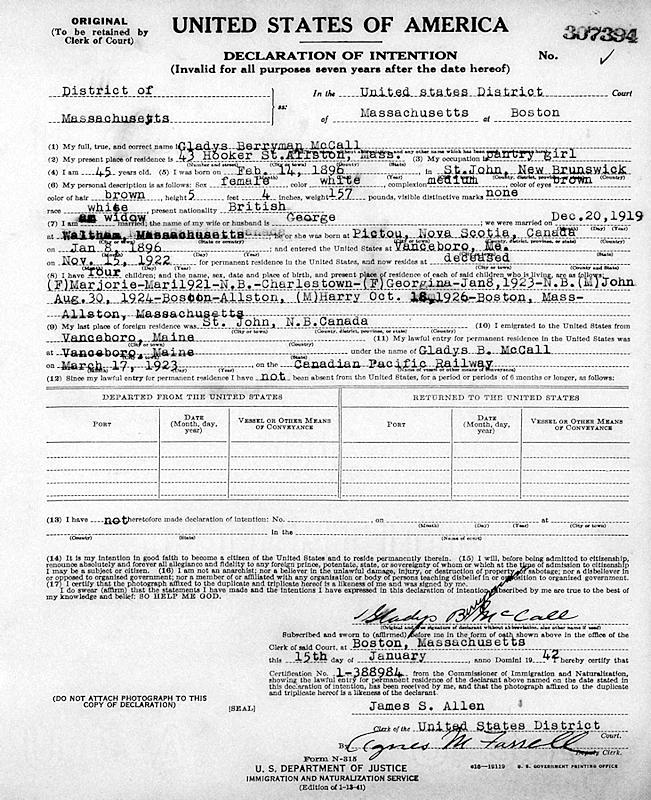 ORIGINAL
(To be retained by
Clerk of Court)
UNITED STATES OF AMERICA
DECLARATION OF INTENTION
(Invalid for all purposes seven years after the date hereof)
No. 307394
District of
Massachusetts
ss:
In the United states District Court
of Massachusetts at Boston
(1) My full, true, and correct name is Gladys Berryman McCall
(2) My present place of residence is 43 Hooker St. Allston, Mass. (3) My occupation is pantry girl
(4) I am 45 years old. (5) I was born on Feb. 14, 1896 in St.John, New Brunswick
(6) My personal description is as follows: Sex female color white complexion medium color of eyes brown
color of hair brown height 5 feet 4 inches, weight 157 pounds, visible distinctive marks none
race white present nationality British
(7) I am widow married; the name of my wife or husband is George we were married on Dec.20,1919
at Waltham, Massachusetts he or she was born at Pictou, Nova Scotia, Canada
on Jan 8, 1896 and entered the United States at Vanceboro, Me.
on Nov. 15, 1922 for permanent residence in the United States, and now resides at deceased
(8) I have four children; and the name, sex, date and place of birth, and present place of residence of each of said children who is living, are as follows:
(F)Marjorie-Mar11921-N.B.-Charlestown-(F)Georgina-Jan8,1923-N.B.(M)John
Aug.30, 1924-Boston-Allston, (M)Harry Oct. 18,1926-Boston, Mass-
Allston, Massachusetts
(9) My last place of foreign residence was St. John, N.B.Canada (10) I emigrated to the United States from
Vanceboro, Maine (11) My lawful entry for permanent residence in the United States was
at Vanceboro, Maine under the name of Gladys B. McCall
on March 17, 1923 on the Canadian Pacific Railway
(12) Since my lawful entry for permanent residence I have not been absent from the United States, for a period or periods of 6 months or longer, as follows:
DEPARTED FROM THE UNITED STATES RETURNED TO THE UNITED STATES
PORT DATE (Month, day, year) VESSEL OR OTHER MEANS OF CONVEYANCE PORT DATE (Month, day, year) VESSEL OR OTHER MEANS OF CONVEYANCE
(13) I have not heretofore made declaration of intention: No. , on at
(Month) (Day) (Year) (City or town)
in the
(County) (State) (Name of court)
(14) It is my intention in good faith to become a citizen of the United States and to reside permanently therein. (15) I will, before being admitted to citizenship,
renounce absolutely and forever all allegiance and fidelity to any foreign prince, potentate, state, or sovereignty of whom or which at the time of admission to citizenship
I may be a subject or citizen. (16) I am not an anarchist; nor a believer in the unlawful damage, injury, or destruction of property, or sabotage; nor a disbeliever in
or opposed to organized government; nor a member of or affiliated with any organization or body of persons teaching disbelief in or opposition to organized government.
(17) I certify that the photograph affixed to the duplicate and triplicate hereof is a likeness of me and was signed by me.
I do swear (affirm) that the statements I have made and the intentions I have expressed in this declaration of intention subscribed by me are true to the best of
my knowledge and belief: SO HELP ME GOD.
Gladys Berryman McCall
(Original and true signature of declarant without abbreviation, also other name if used)
Subscribed and sworn to (affirmed) before me in the form of oath shown above in the office of the
Clerk of said Court, at Boston, Massachusetts
this 15th day of January anno Domini 19 42 hereby certify that
Certification No. 1-388984 from the Commissioner of Immigration and Naturalization,
showing the lawful entry for permanent residence of declarant above named on the date stated in
this declaration of intention, has been received by me, and that the photograph affixed to the duplicate
and triplicate hereof is a likeness of the declarant.
(DO NOT ATTACH PHOTOGRAPH TO THIS
COPY OF DECLARATION)
[SEAL]
James S. Allen
Clerk of the United States District Court.
By Agnes M Farrell Deputy Clerk.
Form N-315
U. S. DEPARTMENT OF JUSTICE
IMMIGRATION AND NATURALIZATION SERVICE
(Edition of 1-13-41)
16—19119 U. S. GOVERNMENT PRINTING OFFICE